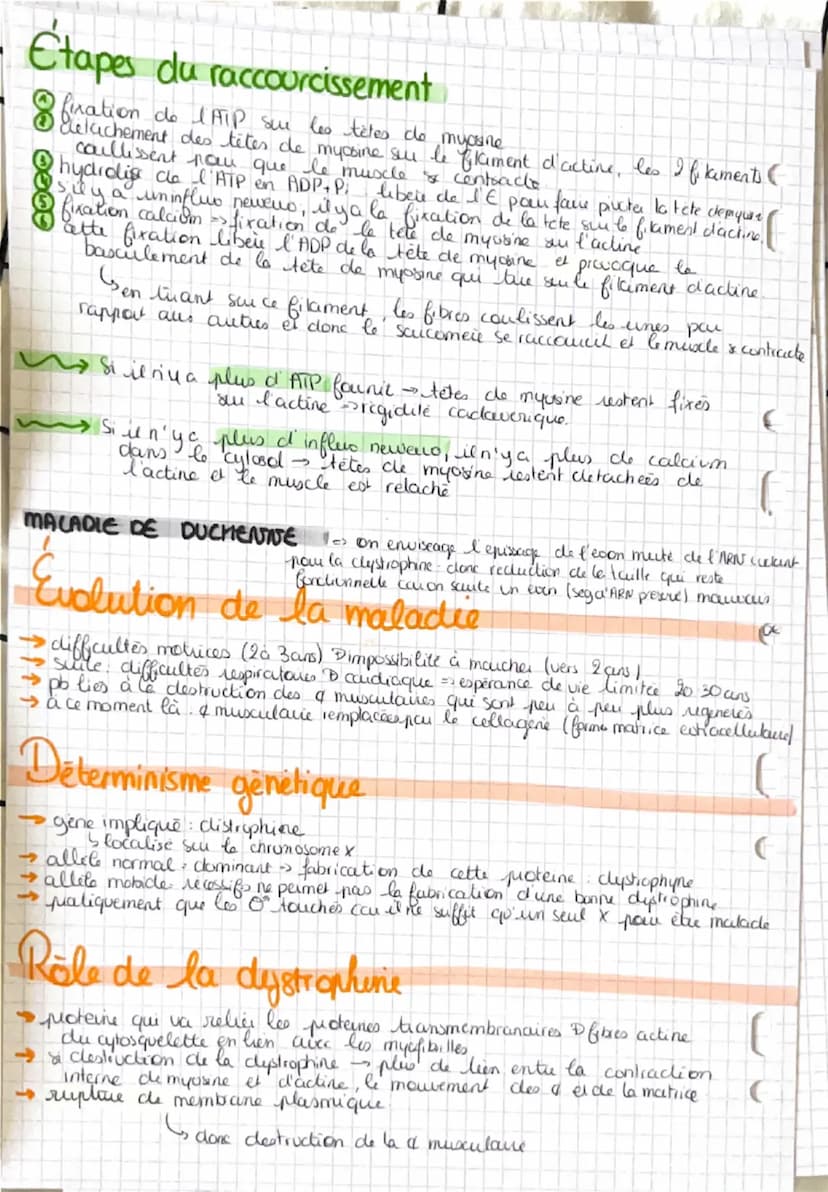 Étapes du raccourcissement
① fixation de l'ATP sur les têtes de myosine
② détachement des têtes de myosine sur le filament d'actine, les 2 filaments
coulissent pour que le muscle se contracte
③ hydrolise de l'ATP en ADP+Pi libère de l'E pour faire pivoter la tête de myosine
④ s'il y a un influx nerveux, il y a la fixation de la tête sur le filament d'actine
⑤ fixation calcium => fixation de la tête de myosine sur l'actine
⑥ cette fixation libère l'ADP de la tête de myosine et provoque le
basculement de la tête de myosine qui tire sur le filament d'actine
↳ en tirant sur ce filament, les fibres coulissent les unes par
rapport aux autres et donc le saucomère se raccourcit et le muscle se contracte
Si il n'y a plus d'ATP fournit → têtes de myosine restent fixés
sur l'actine → rigidité cadavérique.
Si il n'y a plus d'influx nerveux, il n'y a plus de calcium
dans le cytosol → têtes de myosine restent détachées de
l'actine et le muscle est relaché
MALADIE DE DUCHENNE => on envisage l'épissage de l'exon muté de l'ARN codant
pour la dystrophine donc reduction de la taille qui reste
fonctionnelle car on saute un exon
Évolution de la maladie
→ difficultés motrices (2à 3ans) impossibilité à marcher
→ suite : difficultés respiratoires cardiaque => espérance de vie limitée 20 30 ans
→ pb liés à la destruction des musculaires qui sont peu à peu plus régénérés
→ à ce moment là : musculaire remplacées par le collagène (forme matrice extracellulaire)
Déterminisme génétique
→ gène impliqué : distrophine
↳ localisé sur le chromosome X
→ allèle normal : dominant → fabrication de cette protéine : dystrophyne
→ allèle morbide récessif → ne permet pas la fabrication d'une bonne dystrophine
→ pratiquement que les touchés car il ne suffit qu'un seul X pour être malade
Rôle de la dystrophine
→ protéine qui va relier les protéines transmembranaires fibres actine
du cytosquelette en lien avec les myofibrilles
→ si destruction de la dystrophine → plus de lien entre la contraction
interne de myosine et d'actine, le mouvement des et de la matrice
→ rupture de membrane plasmique
↳ donc destruction de la musculaire